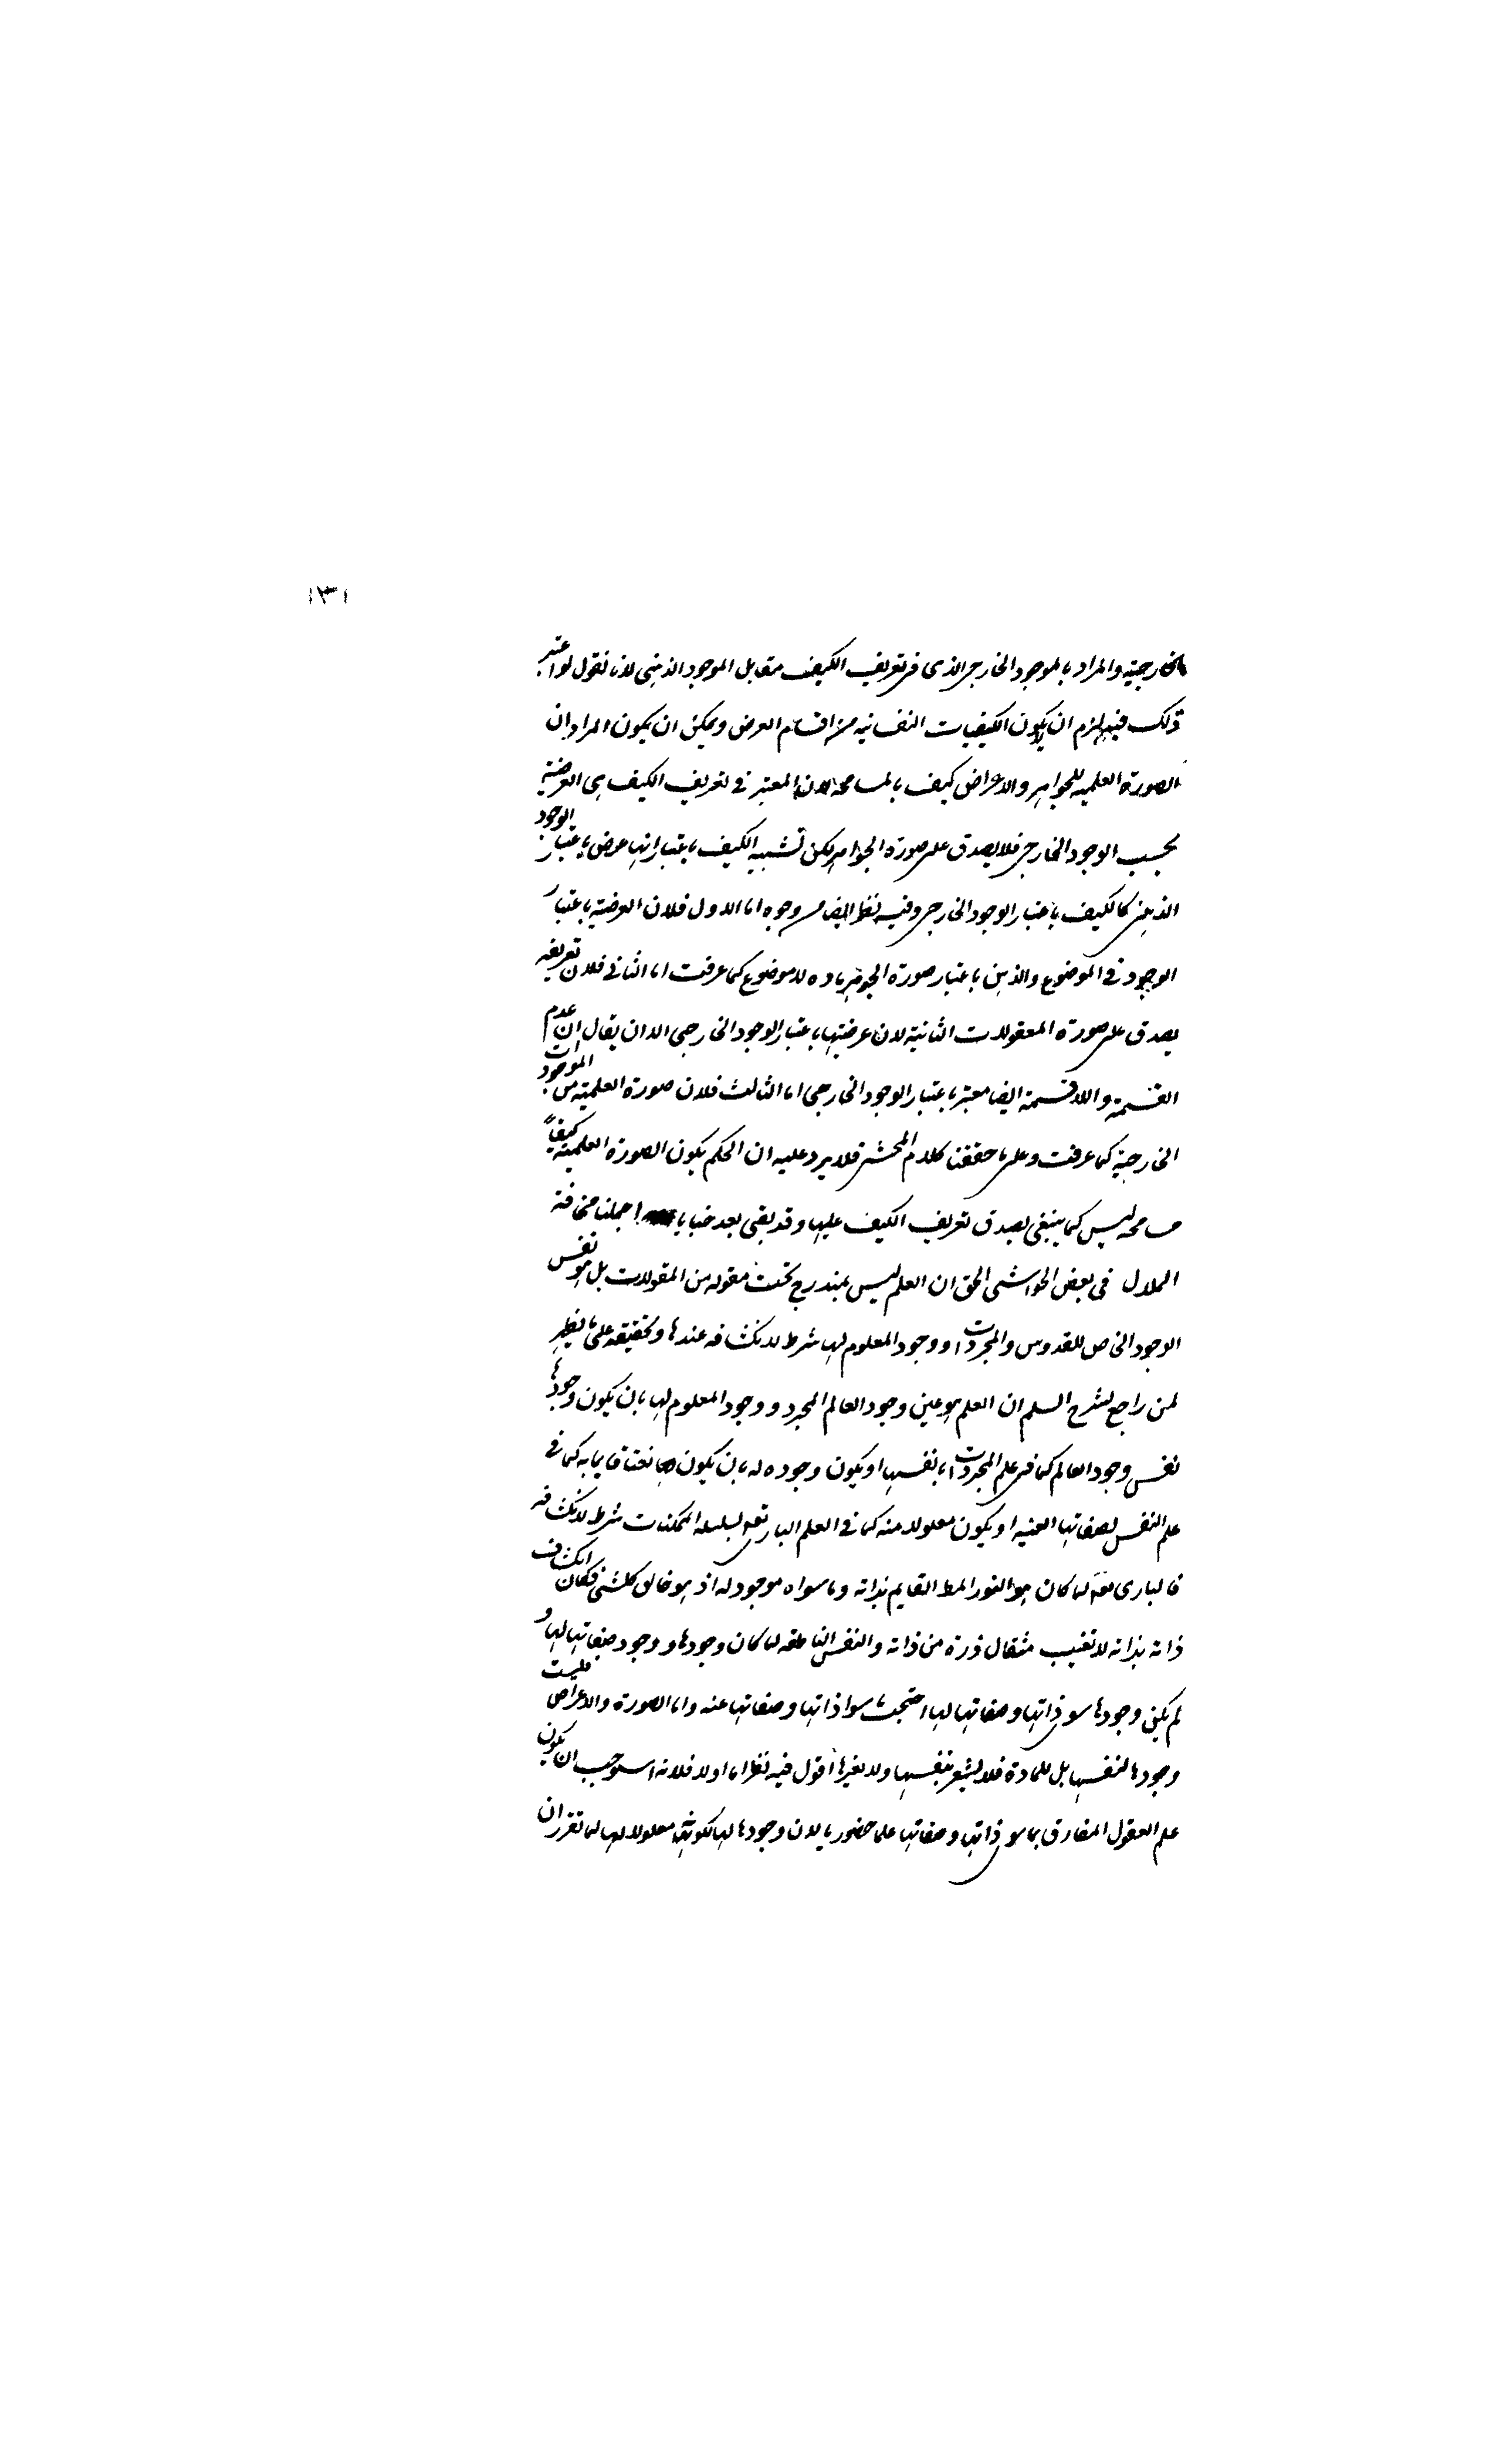 ١٣١
الخارجية والمراد بالموجود الخارجى الذى فى تعريف الكيف مقابل الموجود الذهنى لانا نقول لو اعتبر
ذلك فيه لزم ان لا يكون الكيفيات النفسانيه من اقسام العرض ويمكن ان يكون المراد ان
الصورة العلميه للجواهر والاعراض كيف بالمسامحة لان المعتبر فى تعريف الكيف هى العرضية
بحسب الوجود الخارجى فلا يصدق على صورة الجواهر لكن تشبيه الكيف باعتبار انها عرض باعتبار الوجود
الذهنى كالكيف باعتبار الوجود الخارجى وفيه نظر ايضا من وجوه اما الاول فلان العرضية باعتبار
الوجود فى الموضوع والذهن باعتبار صورة الجوهر ماده لا موضوع كما عرفت اما الثانى فلان تعريفه
يصدق على صورة المعقولات الثانية لان عرضيتها باعتبار الوجود الخارجى الا ان يقال ان عدم
القسمة واللاقسمة ايضا معتبر باعتبار الوجود الخارجى اما الثالث فلان صورة العلمية من الموجودات
الخارجية كما عرفت وعلى ما حققنا كلام المحشى فلا يرد عليه ان الحكم بكون الصورة العلمية كيفاً
مسامحه ليس كما ينبغى بصدق تعريف الكيف عليها وقد بقى بعد خبايا اجملنا مخافة
الملال فى بعض الحواشى الحق ان العلم ليس بمندرج تحت مقوله من المقولات بل هو نفس
الوجود الخاص للقدوس والمجردات ووجود المعلوم لها شرط لانكشافه عندها وتحقيقه على ما يظهر
لمن راجع لشرح السلم ان العلم هو عين وجود العالم المجرد ووجود المعلوم لها بان يكون وجودها
نفس وجود العالم كما فى علم المجردات بانفسها او يكون وجوده له بان يكون نعتا قايما به كما فى
علم النفس لصفاتها العينيه او يكون معلولا منه كما فى العلم البارى تعه لسلسلة الممكنات شرط لانكشافه
فالبارى تعه لما كان هو النور المط القايم بذاته وما سواه موجود له اذ هو خالق كلشئ فكان انكشاف
ذاته بذاته لا تغيب مثقال ذرة من ذاته والنفس الناطقه لما كان وجودها ووجود صفاتها لها و
لم يكن وجود ما سوى ذاتها وصفاتها لها احتجت ما سوا ذاتها وصفاتها عنه واما الصورة والاعراض فليست
وجودها لنفسها بل للمادة فلا يشعر بنفسها ولا بغيرها اقول فيه نظر اما اولا فلانه استوجب ان يكون
علم العقول المفارق بما سوى ذاتها وصفاتها علما حضوريا لان وجودها لها لكونها معلولا لها لما تقرر ان